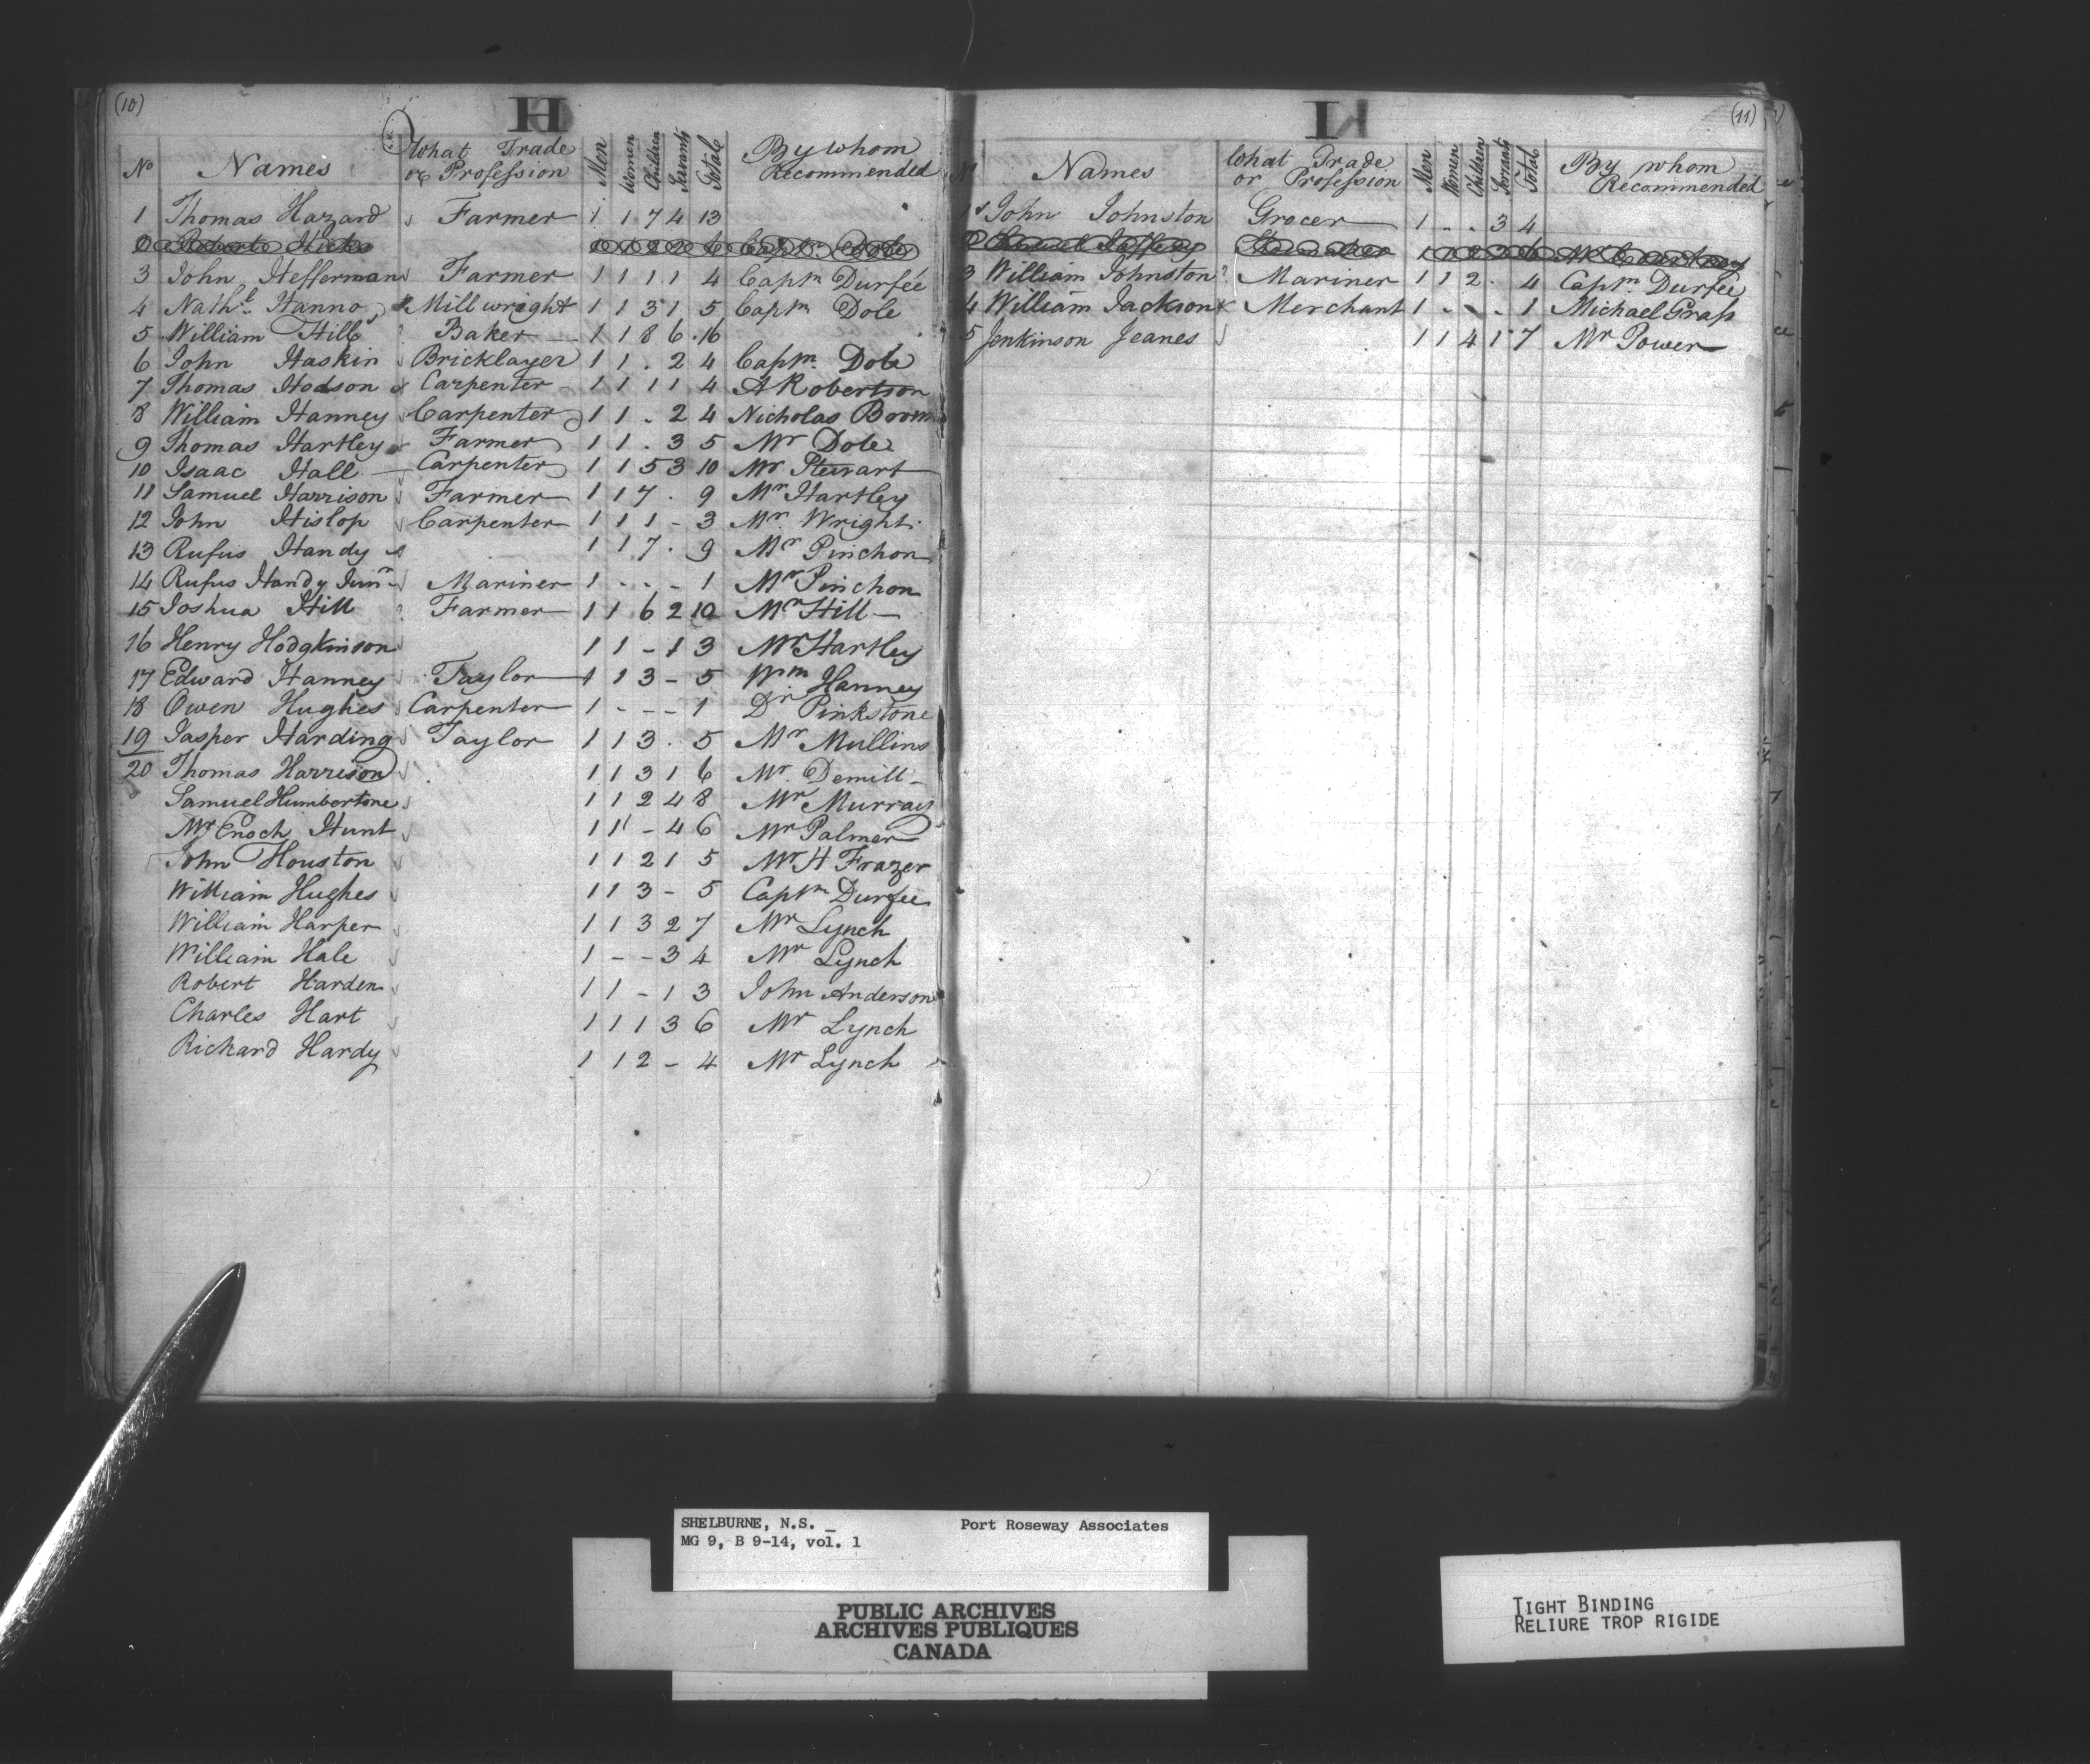 (10)
H
No Names What Trade or Profession Men Women Children Servants Total By whom Recommended
1 Thomas Hazard Farmer 1 1 7 4 13
2 Robert Hicks 1 1 2 2 6 Captn. Dole
3 John Hefferman Farmer 1 1 1 1 4 Captn Durfée
4 Nathl. Hanno Millwright 1 1 3 1 5 Captn Dole
5 William Hill Baker 1 1 8 6 16
6 John Haskin Bricklayer 1 1 . 2 4 Captn. Dole
7 Thomas Hodson Carpenter 1 1 1 1 4 A Robertson
8 William Hanney Carpenter 1 1 . 2 4 Nicholas
9 Thomas Hartley Farmer 1 1 . 3 5 Mr Dole
10 Isaac Hall Carpenter 1 1 5 3 10 Mr Stewart
11 Samuel Harrison Farmer 1 1 7 . 9 Mr Hartley
12 John Hislop Carpenter 1 1 1 - 3 Mr. Wright
13 Rufus Handy 1 1 7 . 9 Mr Pinchon
14 Rufus Handy Junr Mariner 1 - - - 1 Mr Pinchon
15 Joshua Hill Farmer 1 1 6 2 10 Mr Hill
16 Henry Hodgkinson 1 1 - 1 3 Mr Hartley
17 Edward Hanney Taylor 1 1 3 - 5 Wm Hanney
18 Owen Hughes Carpenter 1 - - - 1 Dr Pinkstone
19 Jasper Harding Taylor 1 1 3 . 5 Mr Mullins
20 Thomas Harrison 1 1 3 1 6 Mr. Demill
Samuel Humbertone 1 1 2 4 8 Mr Murray
Mr Enoch Hunt 1 1 - 4 6 Mr Palmer
John Houston 1 1 2 1 5 Mr H Frazer
William Hughes 1 1 3 - 5 Captn Durfée
William Harper 1 1 3 2 7 Mr Lynch
William Hale 1 - - 3 4 Mr Lynch
Robert Harden 1 1 - 1 3 John Anderson
Charles Hart 1 1 1 3 6 Mr Lynch
Richard Hardy 1 1 2 - 4 Mr Lynch
(11)
I
Names What Trade or Profession Men Women Children Servants Total By whom Recommended
1 John Johnston Grocer 1 . . 3 4
Samuel Jeffery
3 William Johnston Mariner 1 1 2 . 4 Captn. Durfée
4 William Jackson Merchant 1 - - - 1 Michael Grass
5 Jenkinson Jeanes 1 1 4 1 7 Mr Power
SHELBURNE, N.S. Port Roseway Associates
MG 9, B 9-14, vol. 1
PUBLIC ARCHIVES
ARCHIVES PUBLIQUES
CANADA
TIGHT BINDING
RELIURE TROP RIGIDE